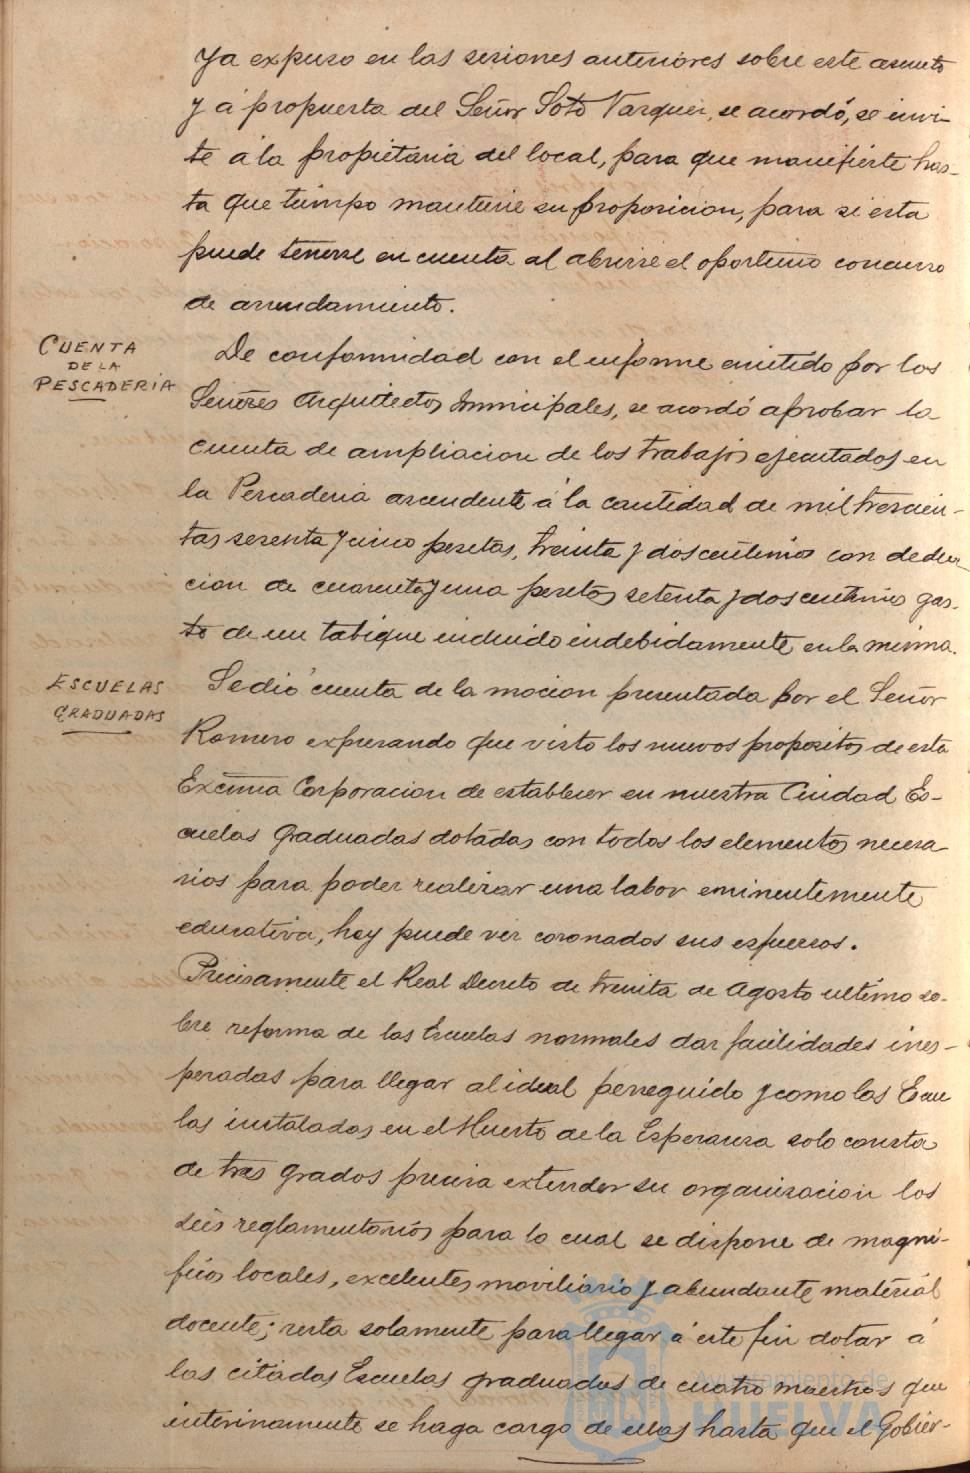 ya expuso en las sesiones anteriores sobre este asunto
y á propuesta del Señor Soto Vazquez, se acordó, se invi-
te á la propietaria del local, para que manifieste has-
ta que tiempo mantiene su proposicion, para si esta
puede tenerse en cuenta al abrirse el oportuno concurso
de arrendamiento.
CUENTA
DE LA
PESCADERIA
De conformidad con el informe emitido por los
Señores Arquitectos Municipales, se acordó aprobar la
cuenta de ampliacion de los trabajos ejecutados en
la Pescaderia ascendente á la cantidad de mil trescien-
tas sesenta y cinco pesetas, treinta y dos centimos con deduc-
cion de cuarenta y una pesetas setenta y dos centimos gas-
to de un tabique incluido indebidamente en la misma.
ESCUELAS
GRADUADAS
Se dió cuenta de la mocion presentada por el Señor
Romero expresando que visto los nuevos propositos de esta
Excma Corporacion de establecer en nuestra Ciudad Es-
cuelas graduadas dotadas con todos los elementos necesa-
rios para poder realizar una labor eminentemente
educativa, hoy puede ver coronados sus esfuerzos.
Precisamente el Real Decreto de treinta de Agosto ultimo so-
bre reforma de las Escuelas normales dar facilidades ines-
peradas para llegar al ideal perseguido y como las Escue
las instaladas en el Huerto de la Esperanza solo consta
de tres grados precisa extender su organizacion los
seis reglamentarios para lo cual se dispone de magni-
ficos locales, excelentes moviliario y abundante material
docente; resta solamente para llegar á este fin dotar á
las citadas Escuelas graduadas de cuatro maestros que
interinamente se haga cargo de ellas hasta que el Gobier-
Ayuntamiento de
HUELVA